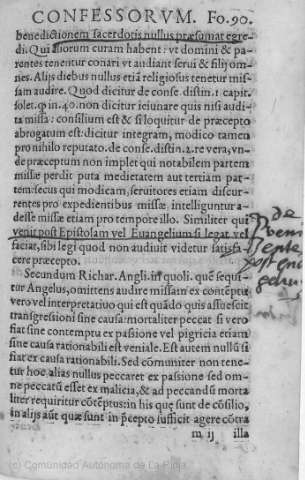 CONFESSORVM. Fo.90.
benedictionem sacerdotis nullus præsumat egre-
di. Qui aliorum curam habent: vt domini & pa-
rentes tenentur conari vt audiant serui & filij om-
nes. Alijs diebus nullus etiā religiosus tenetur mis-
sam audire. Quod dicitur de conse. distin. 1. capit.
solet. q in. 40. non dicitur ieiunare quis nisi audi-
ta missa: consilium est & si loquitur de præcepto
abrogatum est: dicitur integram, modico tamen
pro nihilo reputato. de conse. distin. 2. te vera, vn-
de præceptum non implet qui notabilem partem
missæ perdit puta medietatem aut tertiam par-
tem: secus qui modicam, seruitores etiam discur-
rentes pro expedientibus missæ, intelliguntur a-
desse missæ etiam pro tempore illo. Similiter qui
venit post Epistolam vel Euangelium si legat vel
faciat, sibi legi quod non audiuit videtur satisfa
cere præcepto.
Secundum Richar. Angli. in quoli. quē sequi-
tur Angelus, omittens audire missam ex contēptu
vero vel interpretatiuo qui est quādo quis assuescit
transgressioni sine causa mortaliter peccat si vero
fiat sine contemptu ex passione vel pigricia etiam
sine causa rationabili est veniale. Est autem nullū si
fiat ex causa rationabili. Sed cōmuniter non tene-
tur hoc alias nullus peccaret ex passione sed om-
ne peccatū esset ex malicia, & ad peccandū morta
liter requiritur cōtēptus: in his quę sunt de cōsilio,
in alijs aūt quæ sunt in p̄cepto sufficit agere cōtra
m ij illa
de
post
(c) Comunidad Autónoma de La Rioja